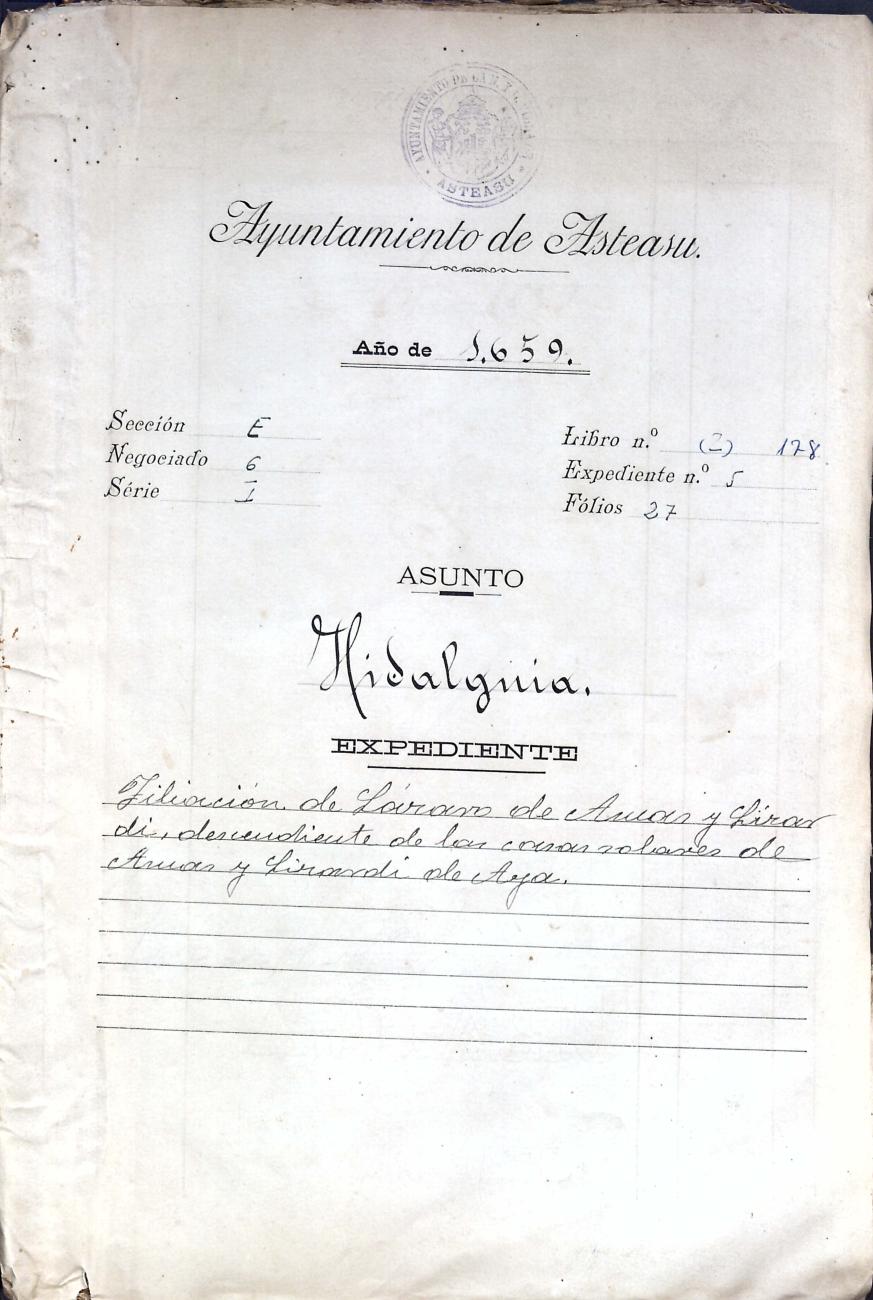 AYUNTAMIENTO DE LA N. Y L. VILLA DE
ASTEASU
Ayuntamiento de Asteasu.
Año de 1.659.
Sección E
Negociado 6
Série I
Libro n.º (I) 178
Expediente n.º 5
Fólios 27
ASUNTO
Hidalguia.
EXPEDIENTE
Filiación de Lázaro de Amas y Lizar
di, descendiente de las casas solares de
Amas y Lizardi de Aya.